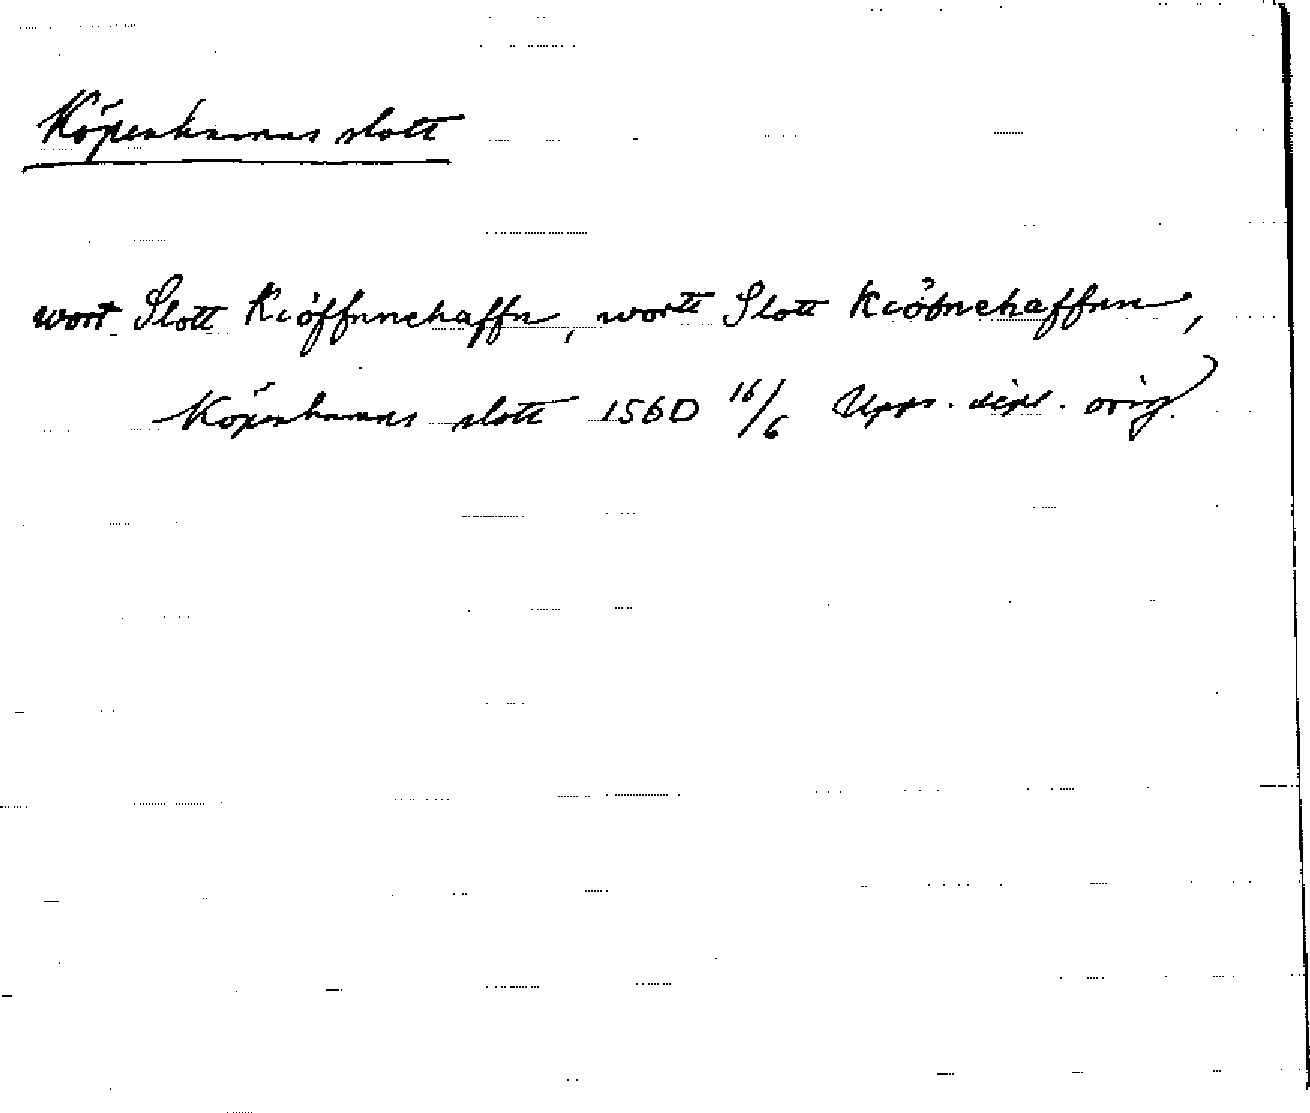 Köpenhamns slott
wort Slott Kiöffnnehaffn, wortt Slott Kiöbnehaffnn,
Köpenhamns slott 1560 16/6 Upps. dipl. orig.